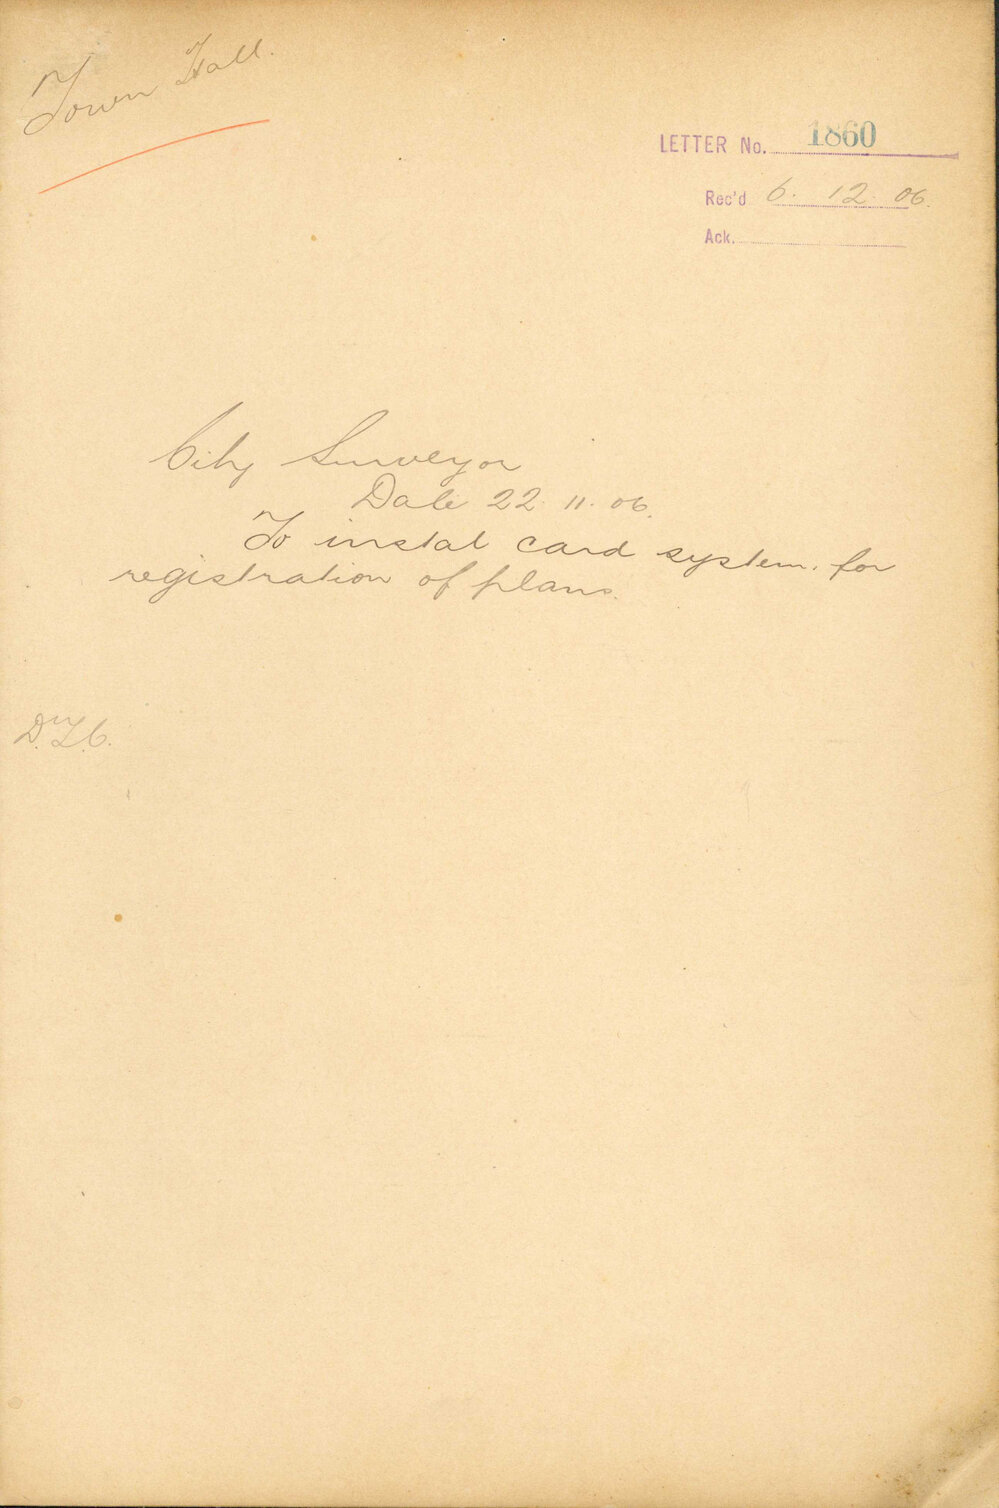 Town Hall.
LETTER No. 1860
Rec'd 6. 12. 06.
Ack.
City Surveyor
Date 22. 11. 06.
To instal card system. for
registration of plans.